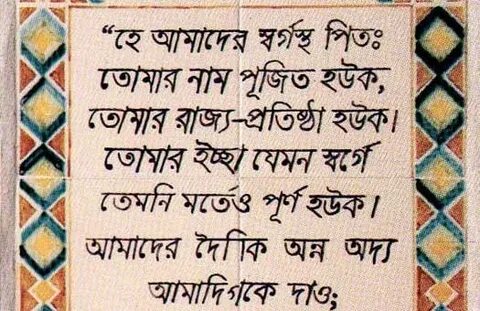 “হে আমাদের স্বর্গস্থ পিতঃ
তোমার নাম পূজিত হউক,
তোমার রাজ্য-প্রতিষ্ঠা হউক।
তোমার ইচ্ছা যেমন স্বর্গে
তেমনি মর্তেও পূর্ণ হউক।
আমাদের দৈনিক অন্ন অদ্য
আমাদিগকে দাও;